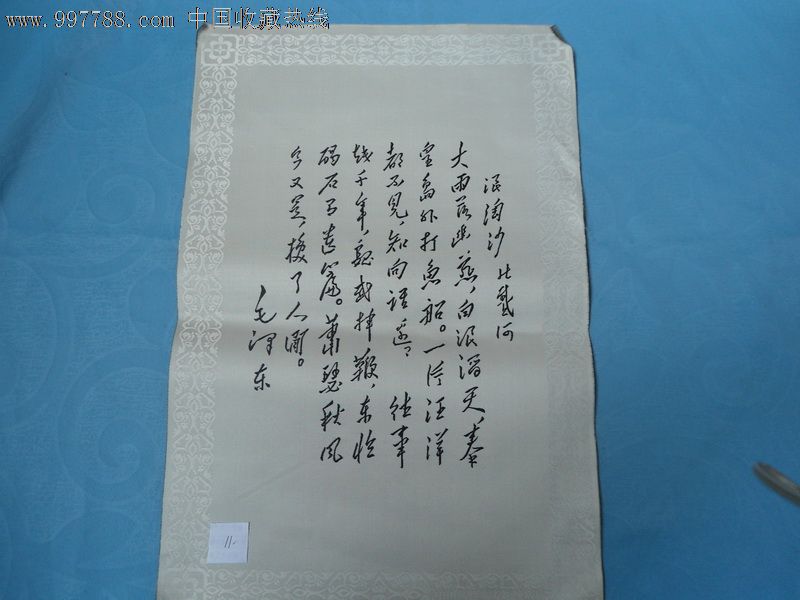 www.997788.com 中国收藏热线
浪淘沙 北戴河
大雨落幽燕，白浪滔天，秦
皇島外打魚船。一片汪洋
都不见，知向谁边？ 往事
越千年，魏武挥鞭，东临
碣石有遗篇。蕭瑟秋风
今又是，換了人间。
毛泽东
11.